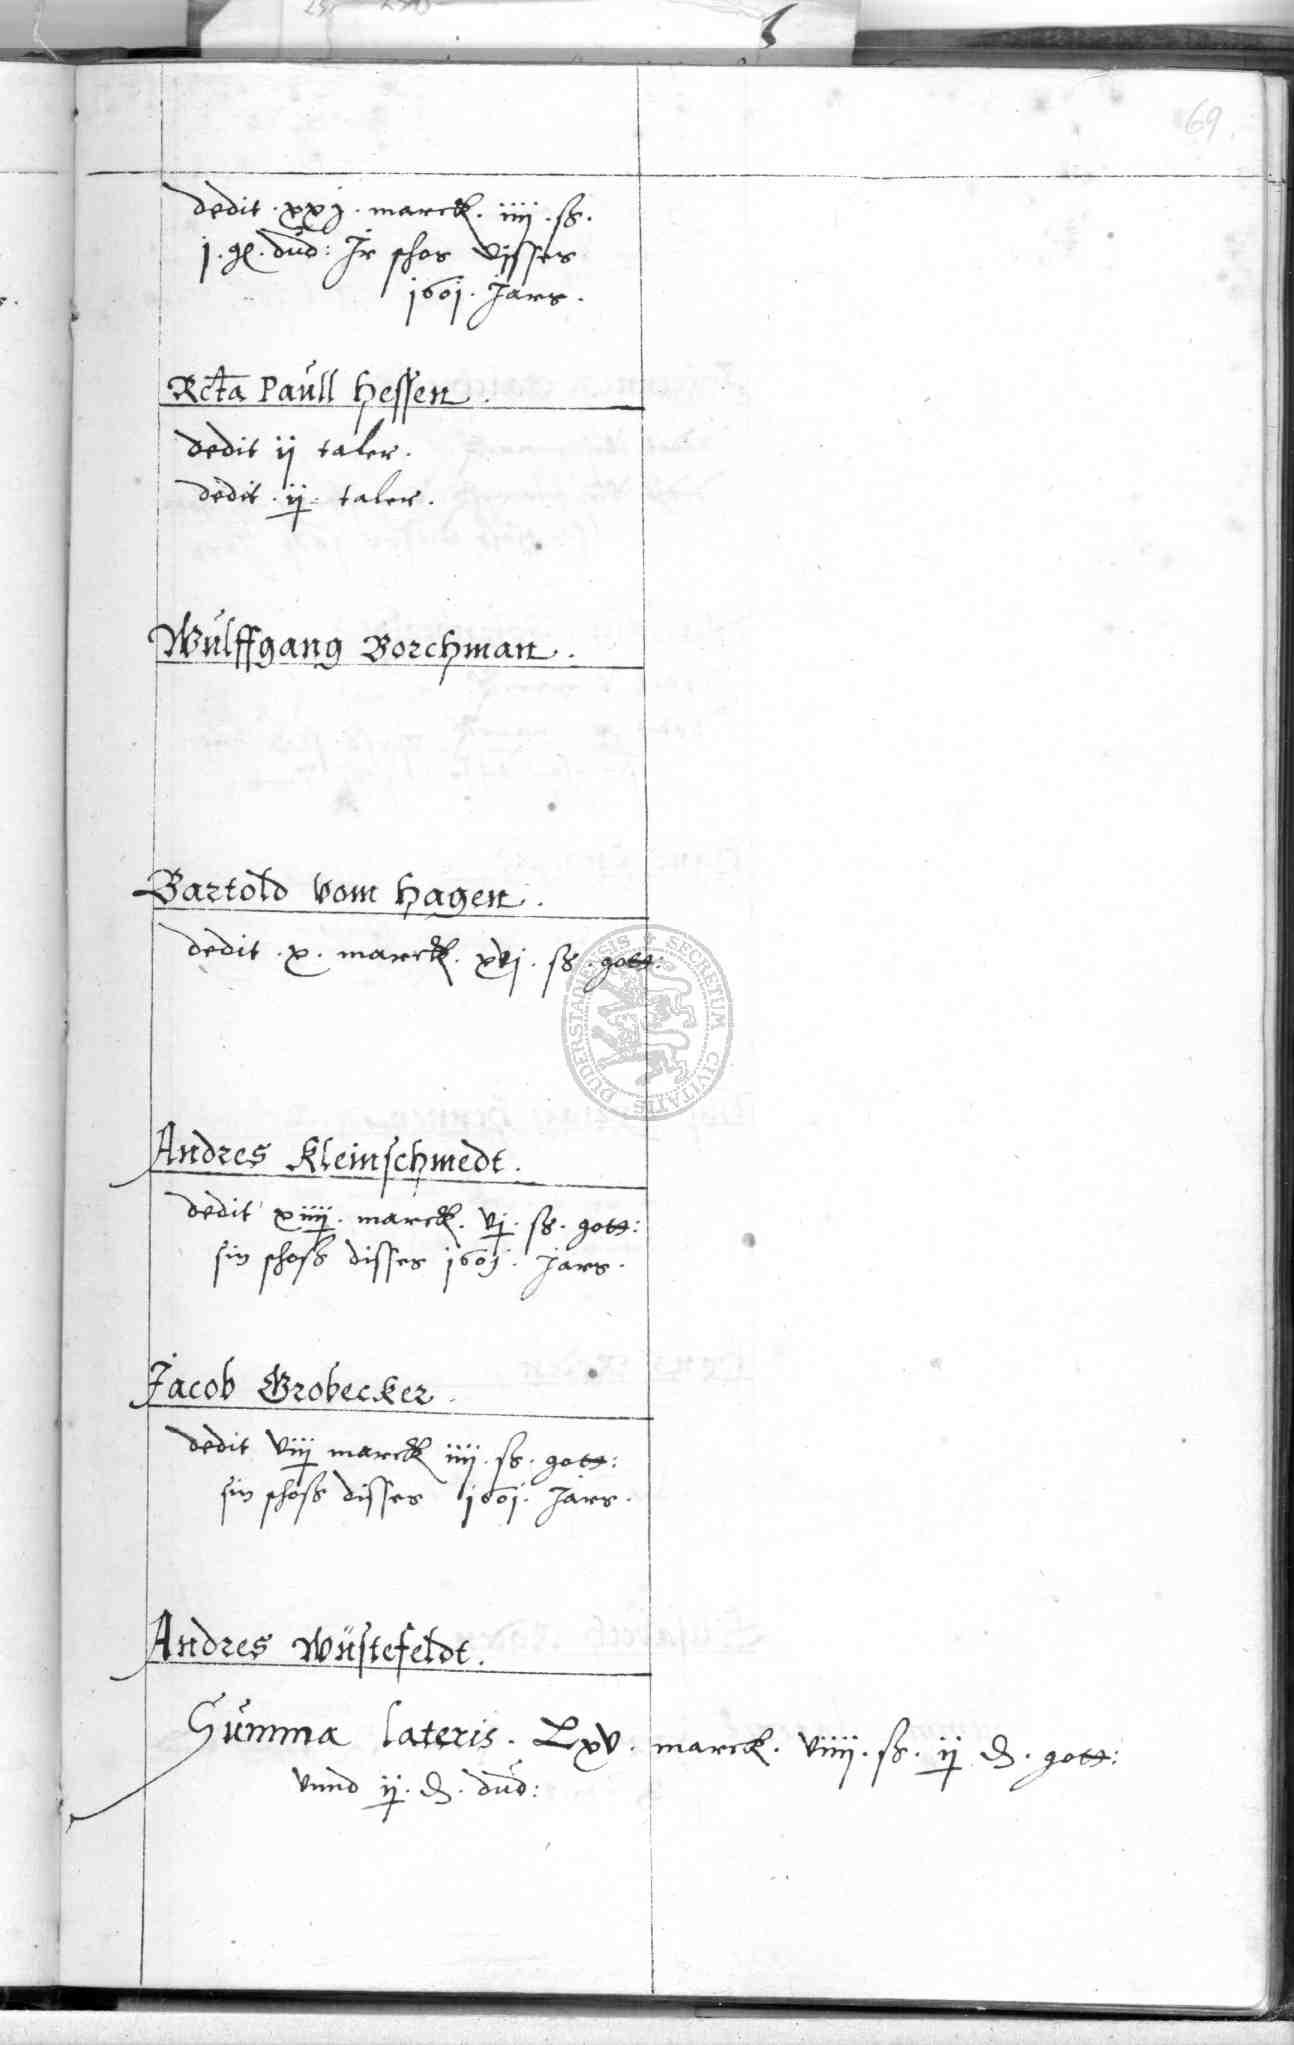 69.
dedit . xxj . marck . iiij . ß .
j . dud: Jr schos disses
1601 . Jars .
Rcta Paull Hessen .
dedit ij taler .
dedit . ij . taler .
Wulffgang Borchman .
Bartold vom Hagen .
dedit . x . marck . xvj . ß . gott:
Andres Kleinschmedt .
dedit xiiij . marck . vj . ß . gott:
sin schoß disses 1601 . Jars .
Jacob Grobecker .
dedit viij marck iiij . ß . gott:
sin schoß disses 1601 . Jars .
Andres Wüstefeldt .
Summa lateris . Lxv . marck . viiij . ß . ij ₰ . gott:
vnnd ij . ₰ . dud:
SECRETUM CIVITATIS DUDERSTADIENSIS